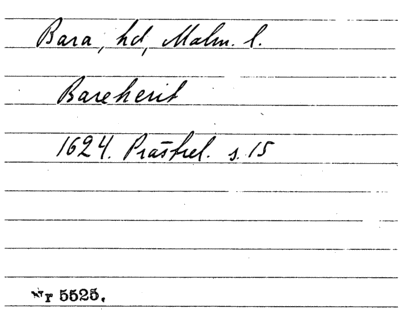 Bara, hd, Malm. l.
Bareherit
1624. Prästrel. s. 15
Nr 5525.